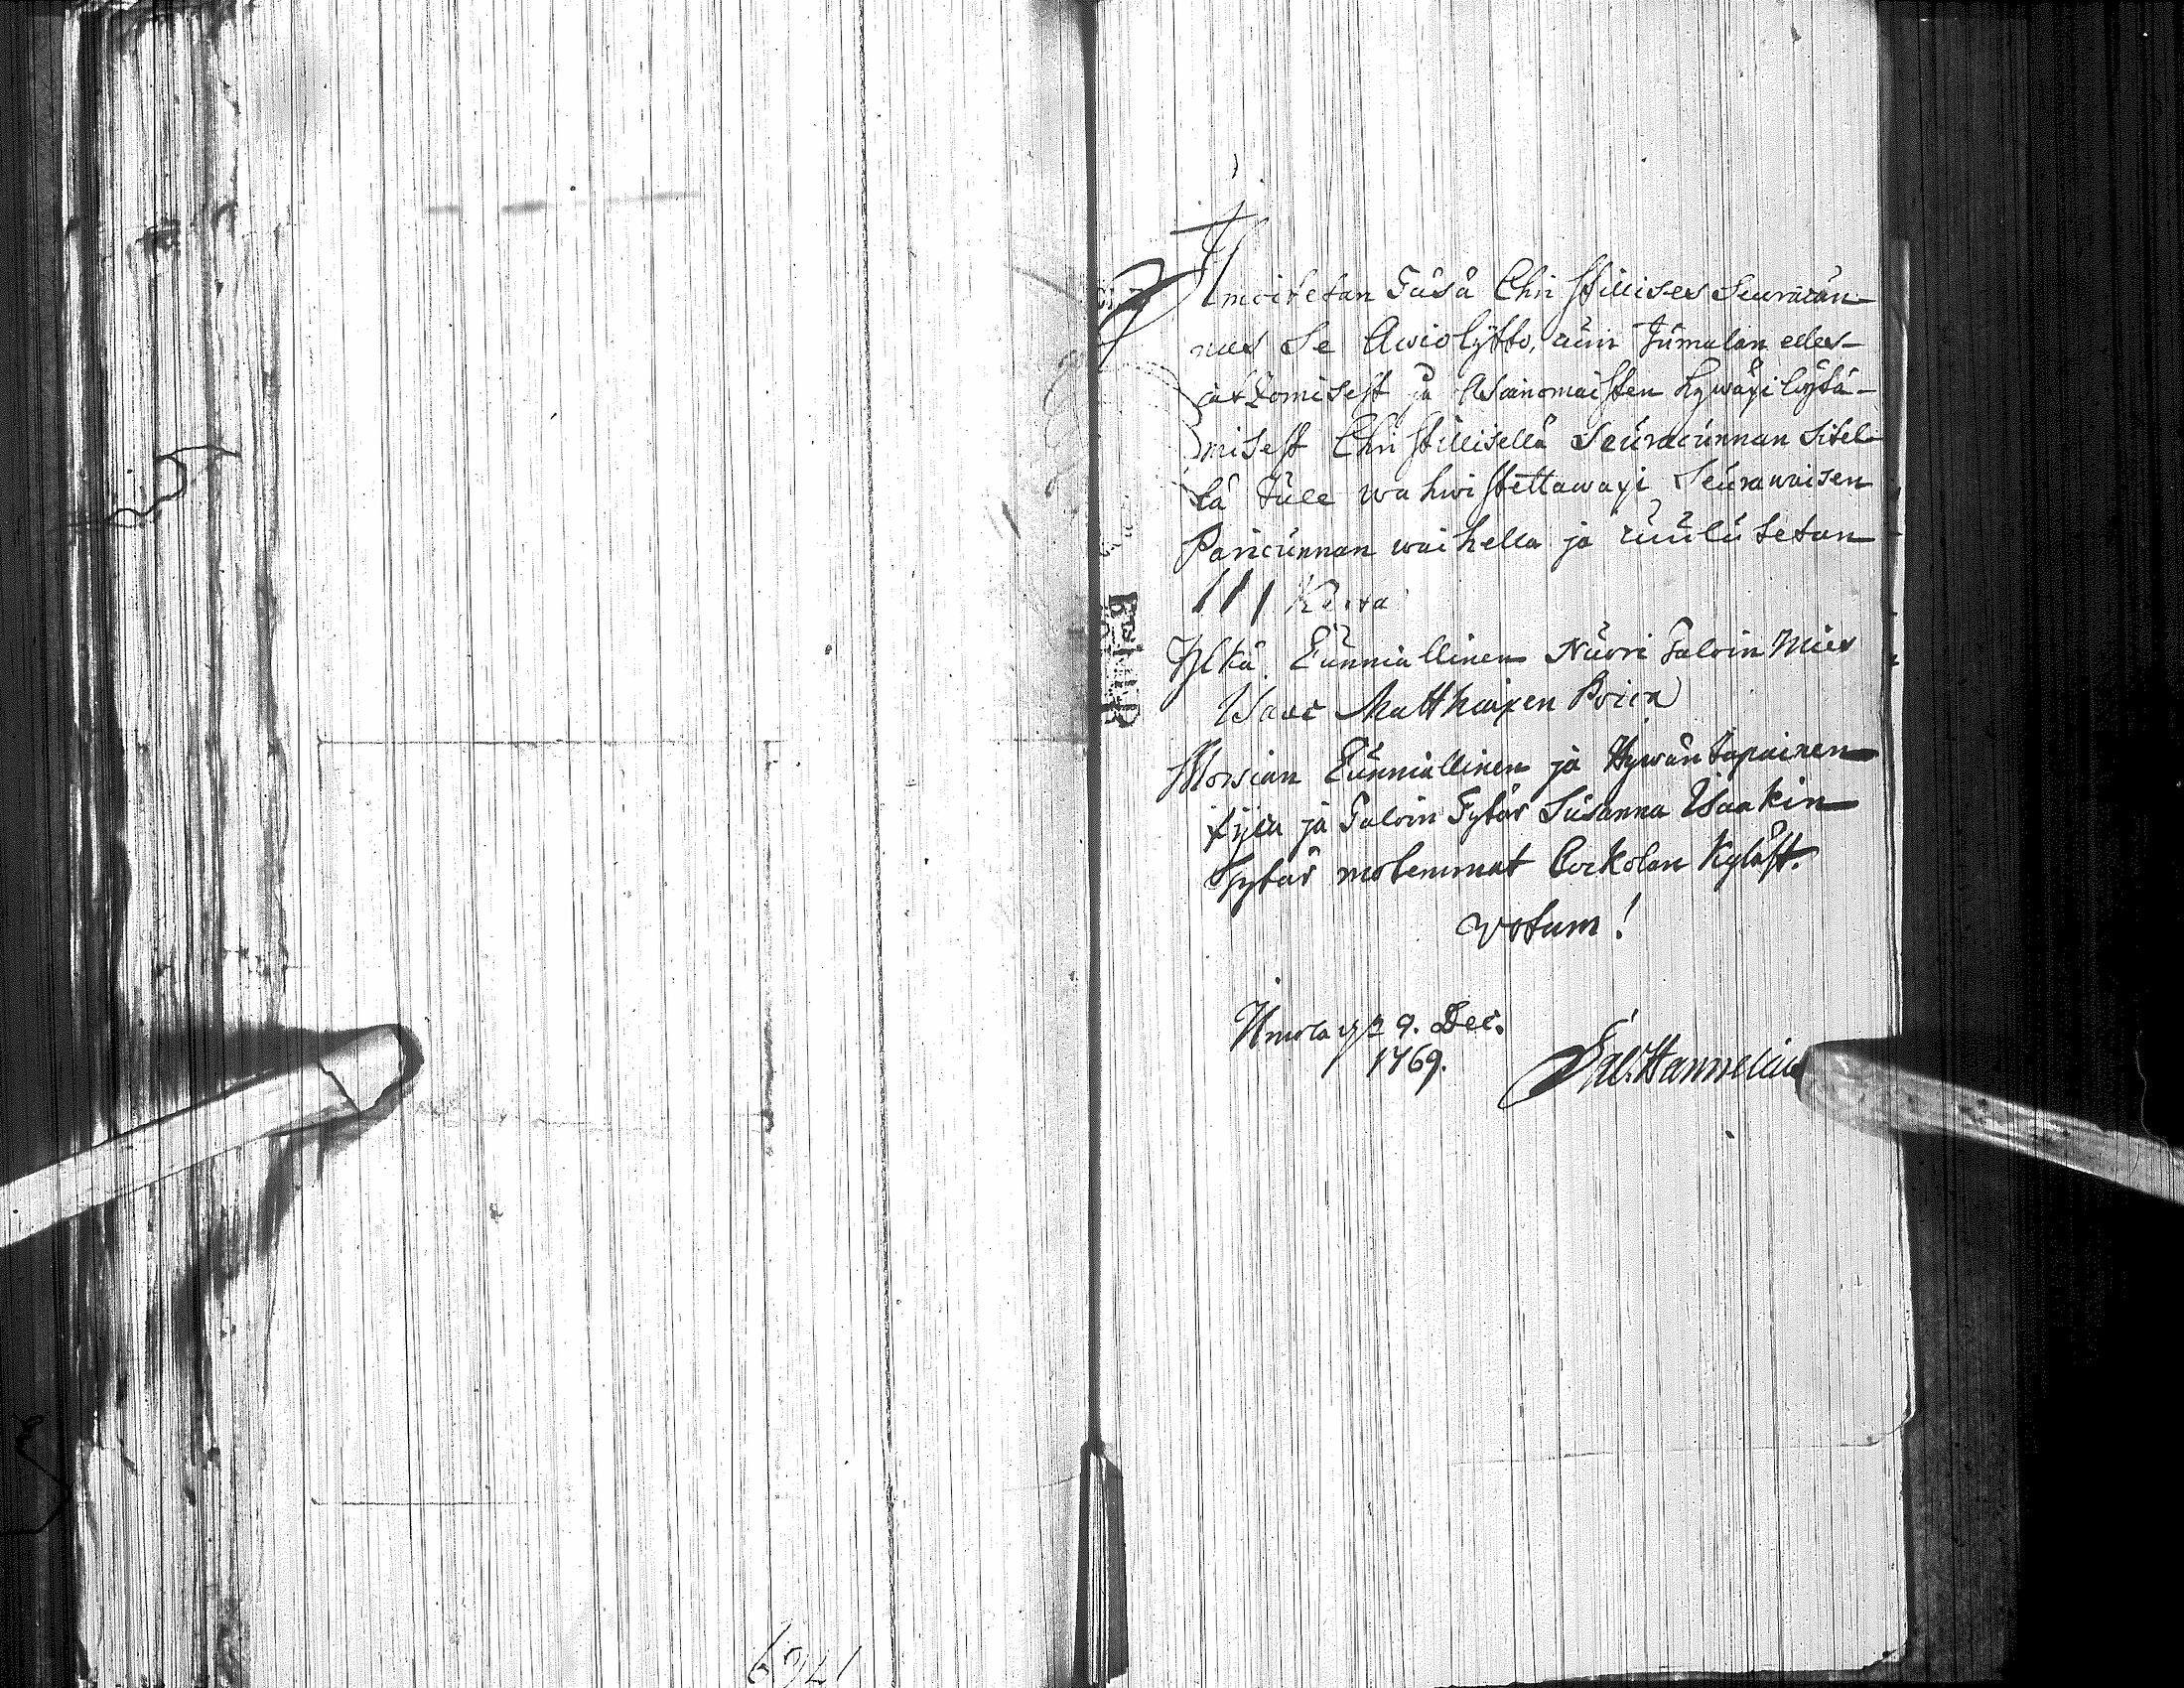 Ilmoitetan Täsä Christillises Seuracun-
nas se Awiolijtto, cuin Jumalan edes-
cadzomisest ja Asianomaisten hywäxi löytä-
misest Christillisellä Seuracunnan sitel-
lä tule wahwistettawaxi Seurawaisen
Paricunnan waihella ja cuulutetan
III Kerta
Ylkä Cunniallinen Nuori Taloin Mies
Isaac Matthaixen Poica
Morsian Cunniallinen ja Hywäntapainen
pijca ja Taloin Tytär Susanna Isaakin
Tytär molemmat Corkolan Kyläst.
Votum!
Urnola 9. Dec.
1769.
Sal. Hannelius
6241